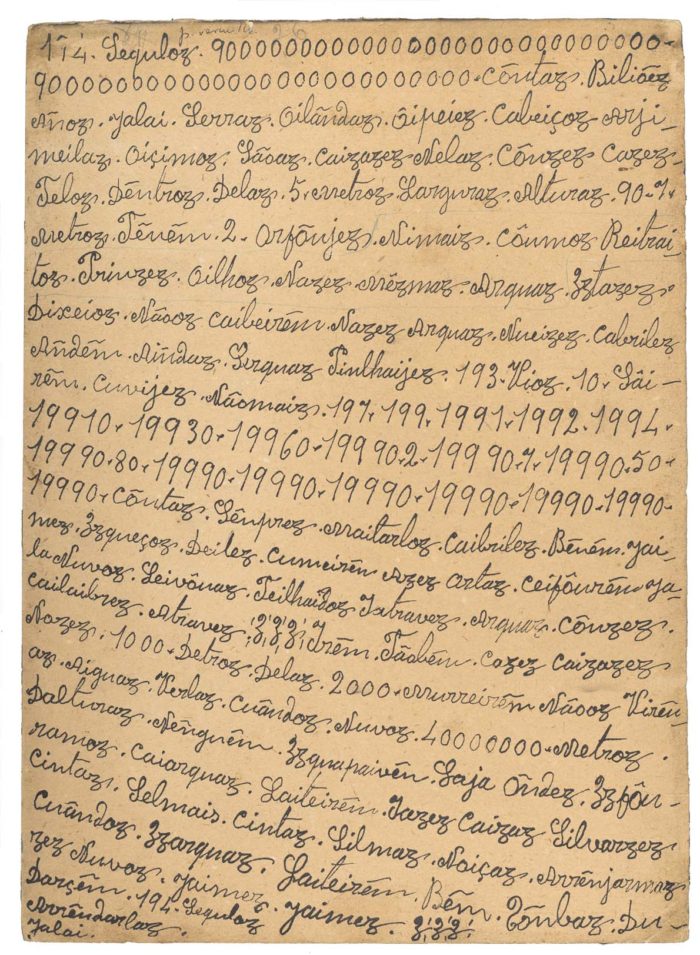 174. Sequloz. 9000000000000000000000000000.
90000000000000000000000000. Cõntaz. Biliõez
Añoz. Jalai. Serraz. Oilãndaz. Õipeiez. Cabeiçoz Arji-
meilaz. Oiçimoz. Sãoaz. Caizazez Nelaz. Cõnzez Cazez.
Teloz. Dẽntroz. Delaz. 5. Metroz Larguraz. Alturaz. 90.7.
Metroz. Tẽnẽm. 2. Orfõnjez. Nimaiz. Cõumoz Reitrai-
toz. Prinzez. Oilhoz. Nazez Mẽzmaz. Arquaz. Zztazez.
Dixeioz. Nãooz Caibeirẽm. Nazez Arquaz. Nueizez. Cabrilez
Añdẽm. Aĩndaz. Serquaz Pinlhaijez. 193. Vioz. 10. Sãi-
rẽm. Cuvijez. Nãomaiz. 197. 199. 1991. 1992. 1994.
19910. 19930. 19960. 19990.2. 19990.7. 19990.50.
19990.80. 19990. 19990. 19990. 19990. 19990. 19990.
19990. Cõntaz. Sẽnprez. Maitarloz Caibrilez. Bẽnẽm. Jai-
mez. Zzqueçoz. Deilez. Cumeirẽm Azez Ortaz. Ceifõurẽm Ja-
la Nuvoz. Seivõnaz. Teilhaidoz Jxtravez. Arquaz. Cõnzez.
Cailaibrez. Atravez Jrẽm. Tãobẽm. Cazez Caizazez
Nozez. 1000. Detroz. Delaz. 2000. Murreirẽm Nãooz Virẽn-
az. Aiguaz. Verlaz. Cuãndoz. Nuvoz. 40000000. Metroz.
Dalturaz. Nẽnguẽm. Zzquapaivẽn. Saja Õndez. Zzfõu-
ramoz. Caiarquaz. Saiteirẽm. Jazez Caizaz Silvarzez
Cintaz. Selmais. Cintaz. Silmaz. Noiçaz. Arrẽnjarmaz
Cuãndoz. Zzarquaz. Saiteirẽm. Bẽm. Tõnbaz. Du-
zez Nuvoz. Jaimez. Jaimez.
Darçẽm. 194. Sequloz
Arrẽndarlaz.
Jalai.